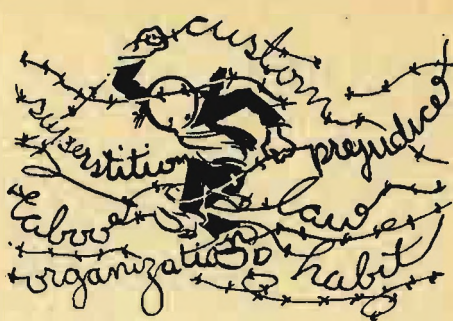 custom
superstition prejudice
taboo law
organization habit